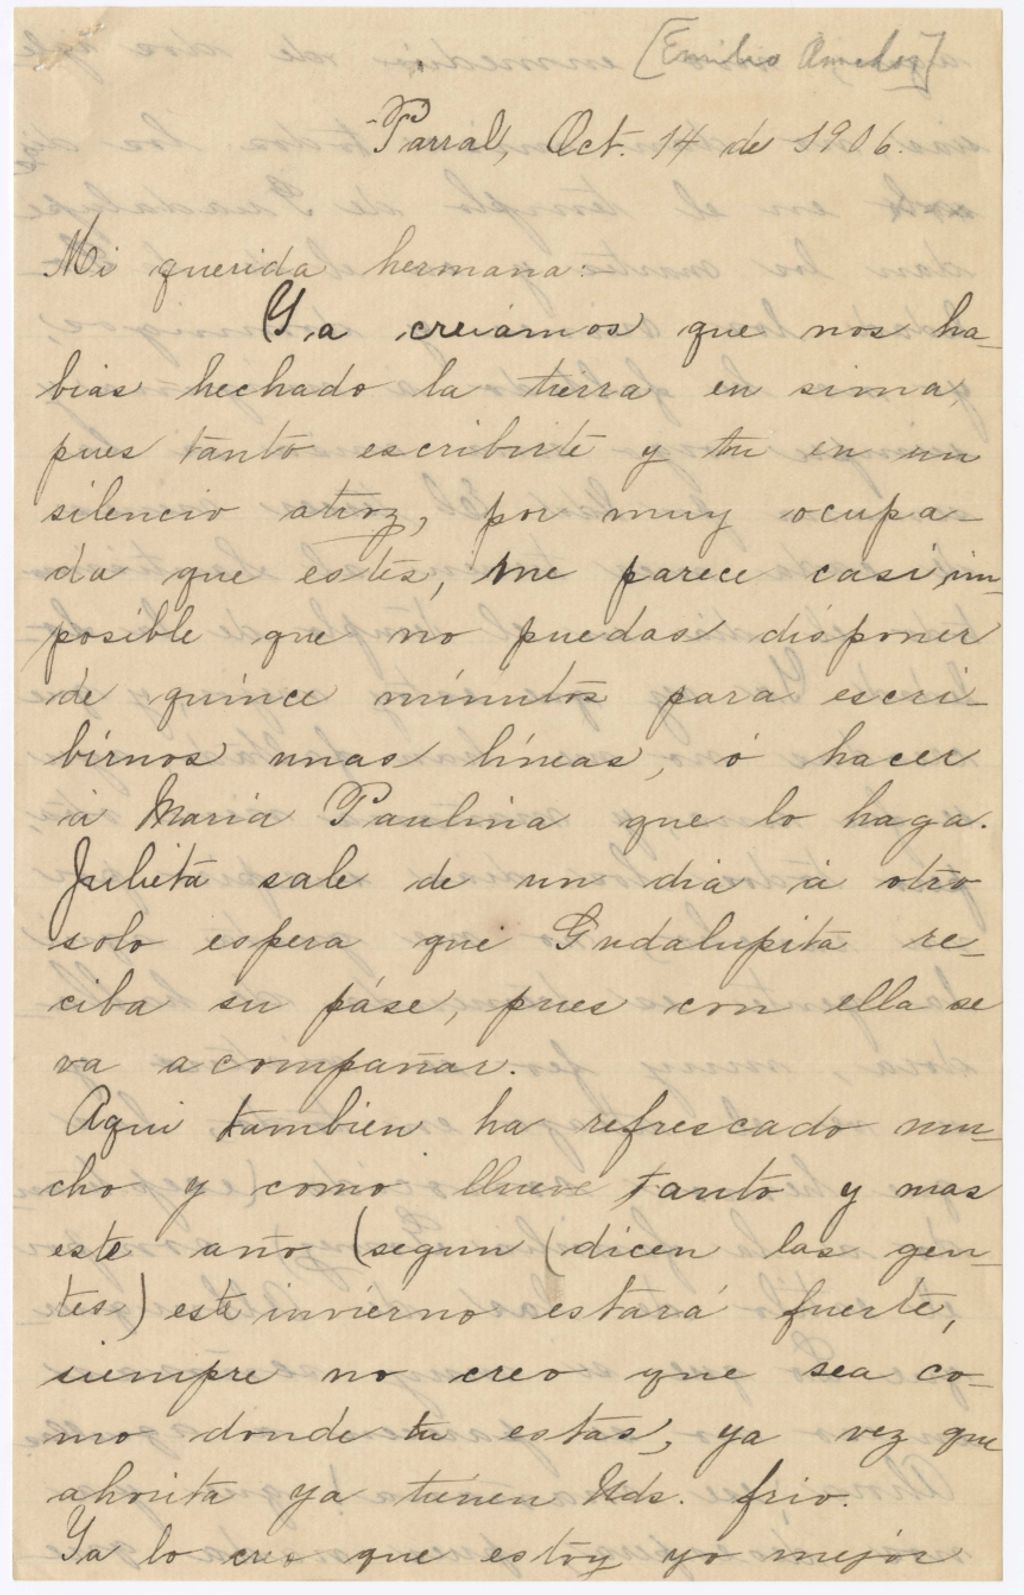 [Emilio Amador]
Parral, Oct. 14 de 1906.
Mi querida hermana:
Ya creiamos que nos ha-
bias hechado la tierra en sima,
pues tanto escribirte y tu en un
silencio atroz, por muy ocupa-
da que estés, me parece casi im-
posible que no puedas disponer
de quince minutos para escri-
birnos unas líneas, ó hacer
á Maria Paulina que lo haga.
Julieta sale de un dia á otro
solo espera que Gudalupita re-
ciba su páse, pues con ella se
va acompañar.
Aqui tambien ha refrescado mu-
cho y como llueve tanto y mas
este año (segun (dicen las gen-
tes) este invierno estará fuerte,
siempre no creo que sea co-
mo donde tu estas, ya vez que
ahorita ya tienen Uds. frio.
Ya lo creo que estoy yo mejor